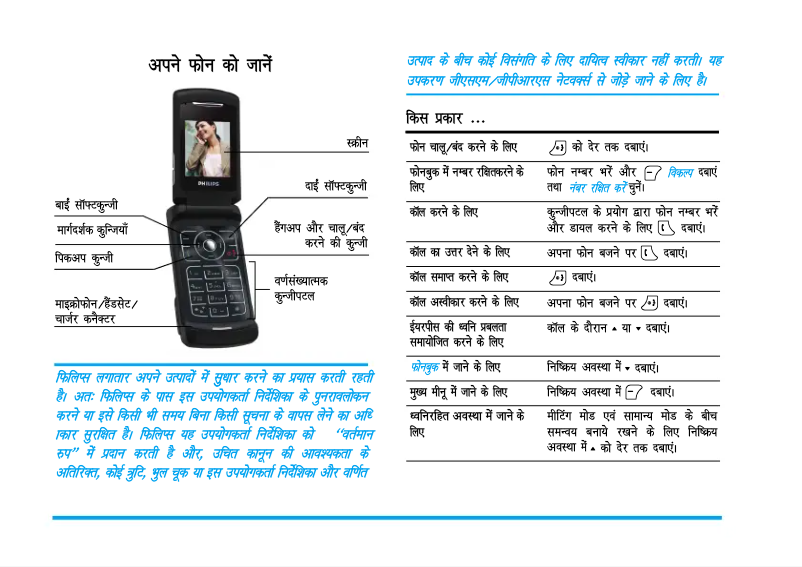 अपने फोन को जानें
PHILIPS
स्क्रीन
दाईं सॉफ्टकुन्जी
बाईं सॉफ्टकुन्जी
मार्गदर्शक कुन्जियाँ
हैंगअप और चालू/बंद
करने की कुन्जी
पिकअप कुन्जी
वर्णसंख्यात्मक
कुन्जीपटल
माइक्रोफोन/हैंडसेट/
चार्जर कनैक्टर
फिलिप्स लगातार अपने उत्पादों में सुधार करने का प्रयास करती रहती
है। अतः फिलिप्स के पास इस उपयोगकर्ता निर्देशिका के पुनरावलोकन
करने या इसे किसी भी समय बिना किसी सूचना के वापस लेने का अधि
ाकार सुरक्षित है। फिलिप्स यह उपयोगकर्ता निर्देशिका को “वर्तमान
रुप” में प्रदान करती है और, उचित कानून की आवश्यकता के
अतिरिक्त, कोई त्रुटि, भुल चूक या इस उपयोगकर्ता निर्देशिका और वर्णित
उत्पाद के बीच कोई विसंगति के लिए दायित्व स्वीकार नहीं करती। यह
उपकरण जीएसएम/जीपीआरएस नेटवर्क्स से जोड़े जाने के लिए है।
किस प्रकार ...
फोन चालू/बंद करने के लिए को देर तक दबाएं।
फोनबुक में नम्बर रक्षितकरने के फोन नम्बर भरें और विकल्प दबाएं
लिए तथा नंबर रक्षित करें चुनें।
कॉल करने के लिए कुन्जीपटल के प्रयोग द्वारा फोन नम्बर भरें
और डायल करने के लिए दबाएं।
कॉल का उत्तर देने के लिए अपना फोन बजने पर दबाएं।
कॉल समाप्त करने के लिए दबाएं।
कॉल अस्वीकार करने के लिए अपना फोन बजने पर दबाएं।
ईयरपीस की ध्वनि प्रबलता कॉल के दौरान ▲ या ▼ दबाएं।
समायोजित करने के लिए
फोनबुक में जाने के लिए निष्क्रिय अवस्था में ▼ दबाएं।
मुख्य मीनू में जाने के लिए निष्क्रिय अवस्था में दबाएं।
ध्वनिरहित अवस्था में जाने के मीटिंग मोड एवं सामान्य मोड के बीच
लिए समन्वय बनाये रखने के लिए निष्क्रिय
अवस्था में ▲ को देर तक दबाएं।